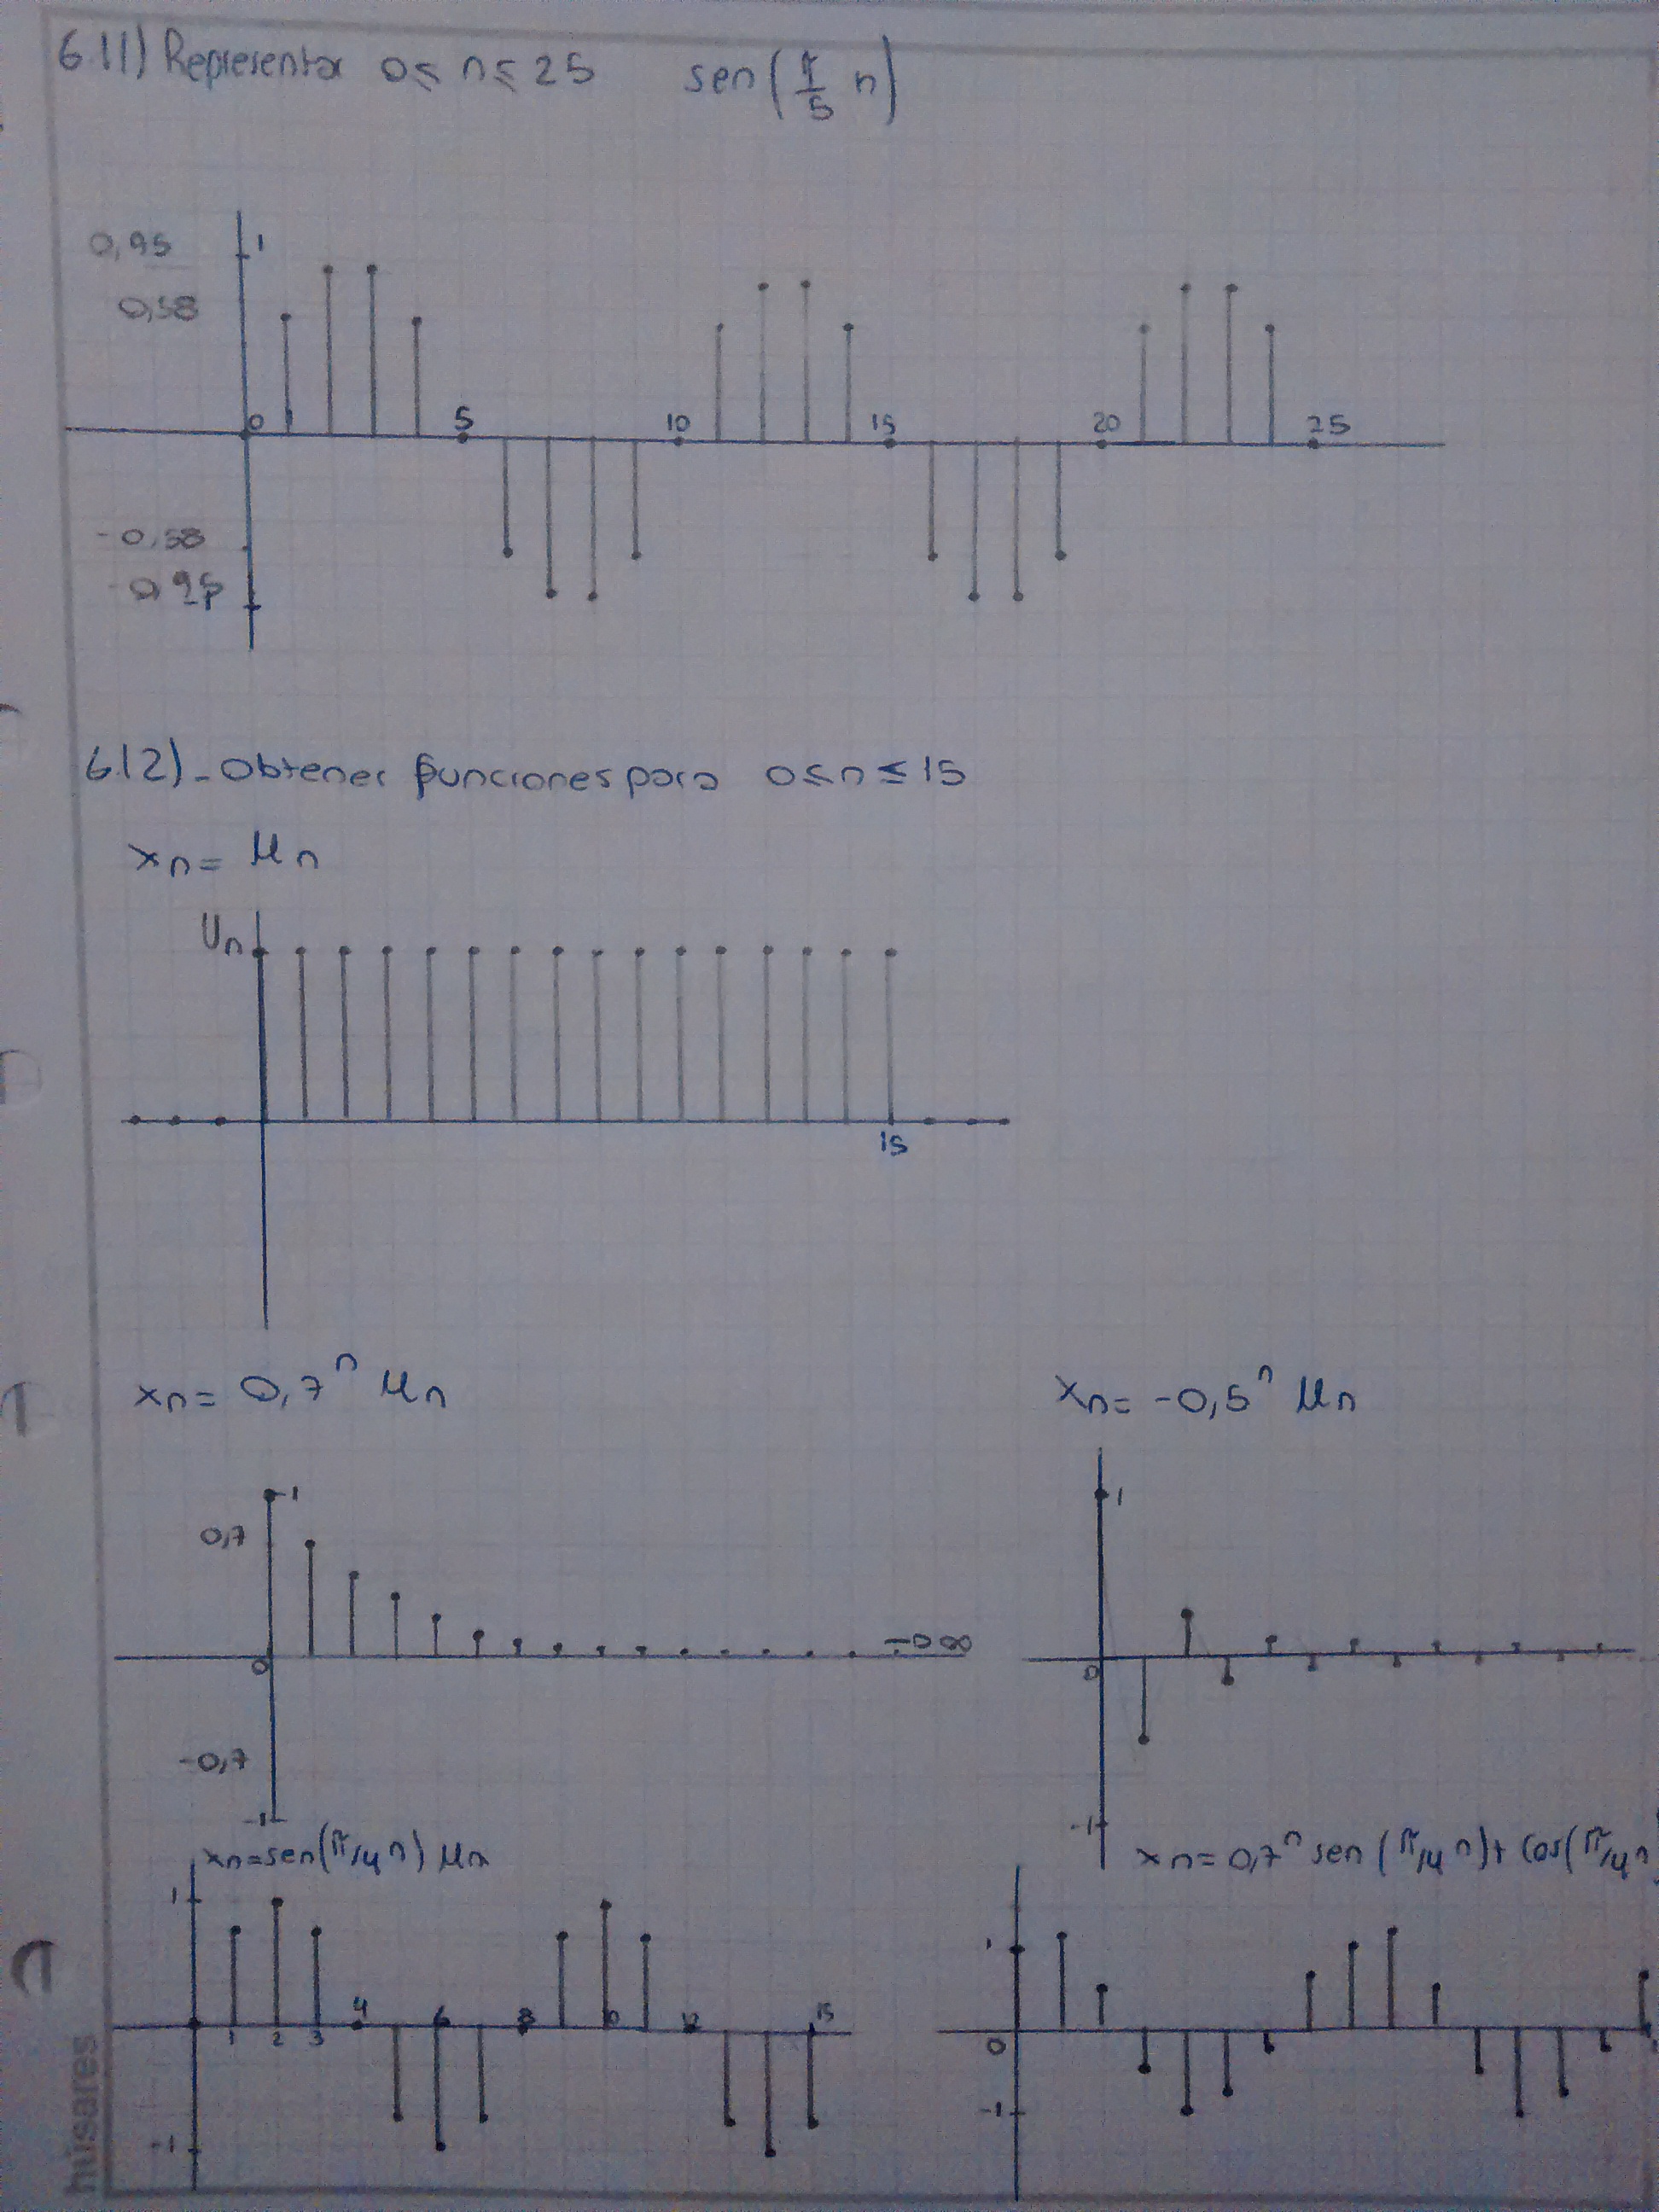 6.11) Representar 0 ≤ n ≤ 25 sen(π/5 n)
0,95
1
0,58
0 1 5 10 15 20 25
-0,58
-0,95
6.12)_ Obtener funciones para 0 ≤ n ≤ 15
xn = μn
Un
15
xn = 0,7ⁿ μn
1
0,7
0
-0,7
-1
xn = -0,5ⁿ μn
1
0
-1
xn=sen(π/4 n) μn
1
1 2 3 4 6 8 12 15
-1
xn = 0,7ⁿ sen (π/4 n)+ cos(π/4 n
1
0
-1
húsares